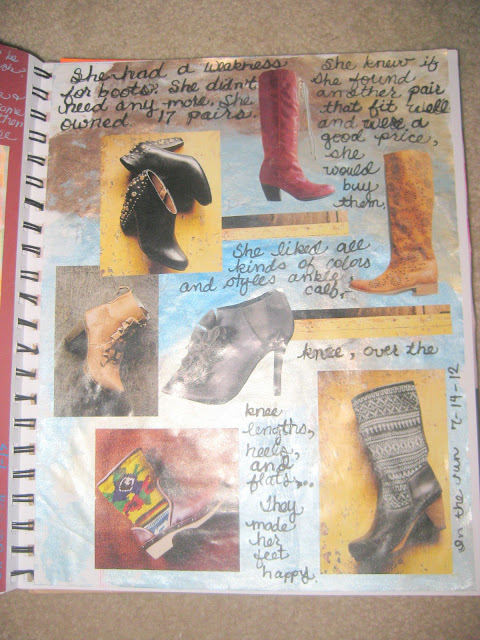 She had a weakness
for boots. She didn't
need any more. She
owned 17 pairs.
She knew if
she found
another pair
that fit well
and were a
good price,
she
would
buy
them.
She liked all
kinds of colors
and styles ankle,
calb,
knee, over the
knee
lengths,
heels,
and
flats...
They
made
her
feet
happy.
In the sun 7-19-12